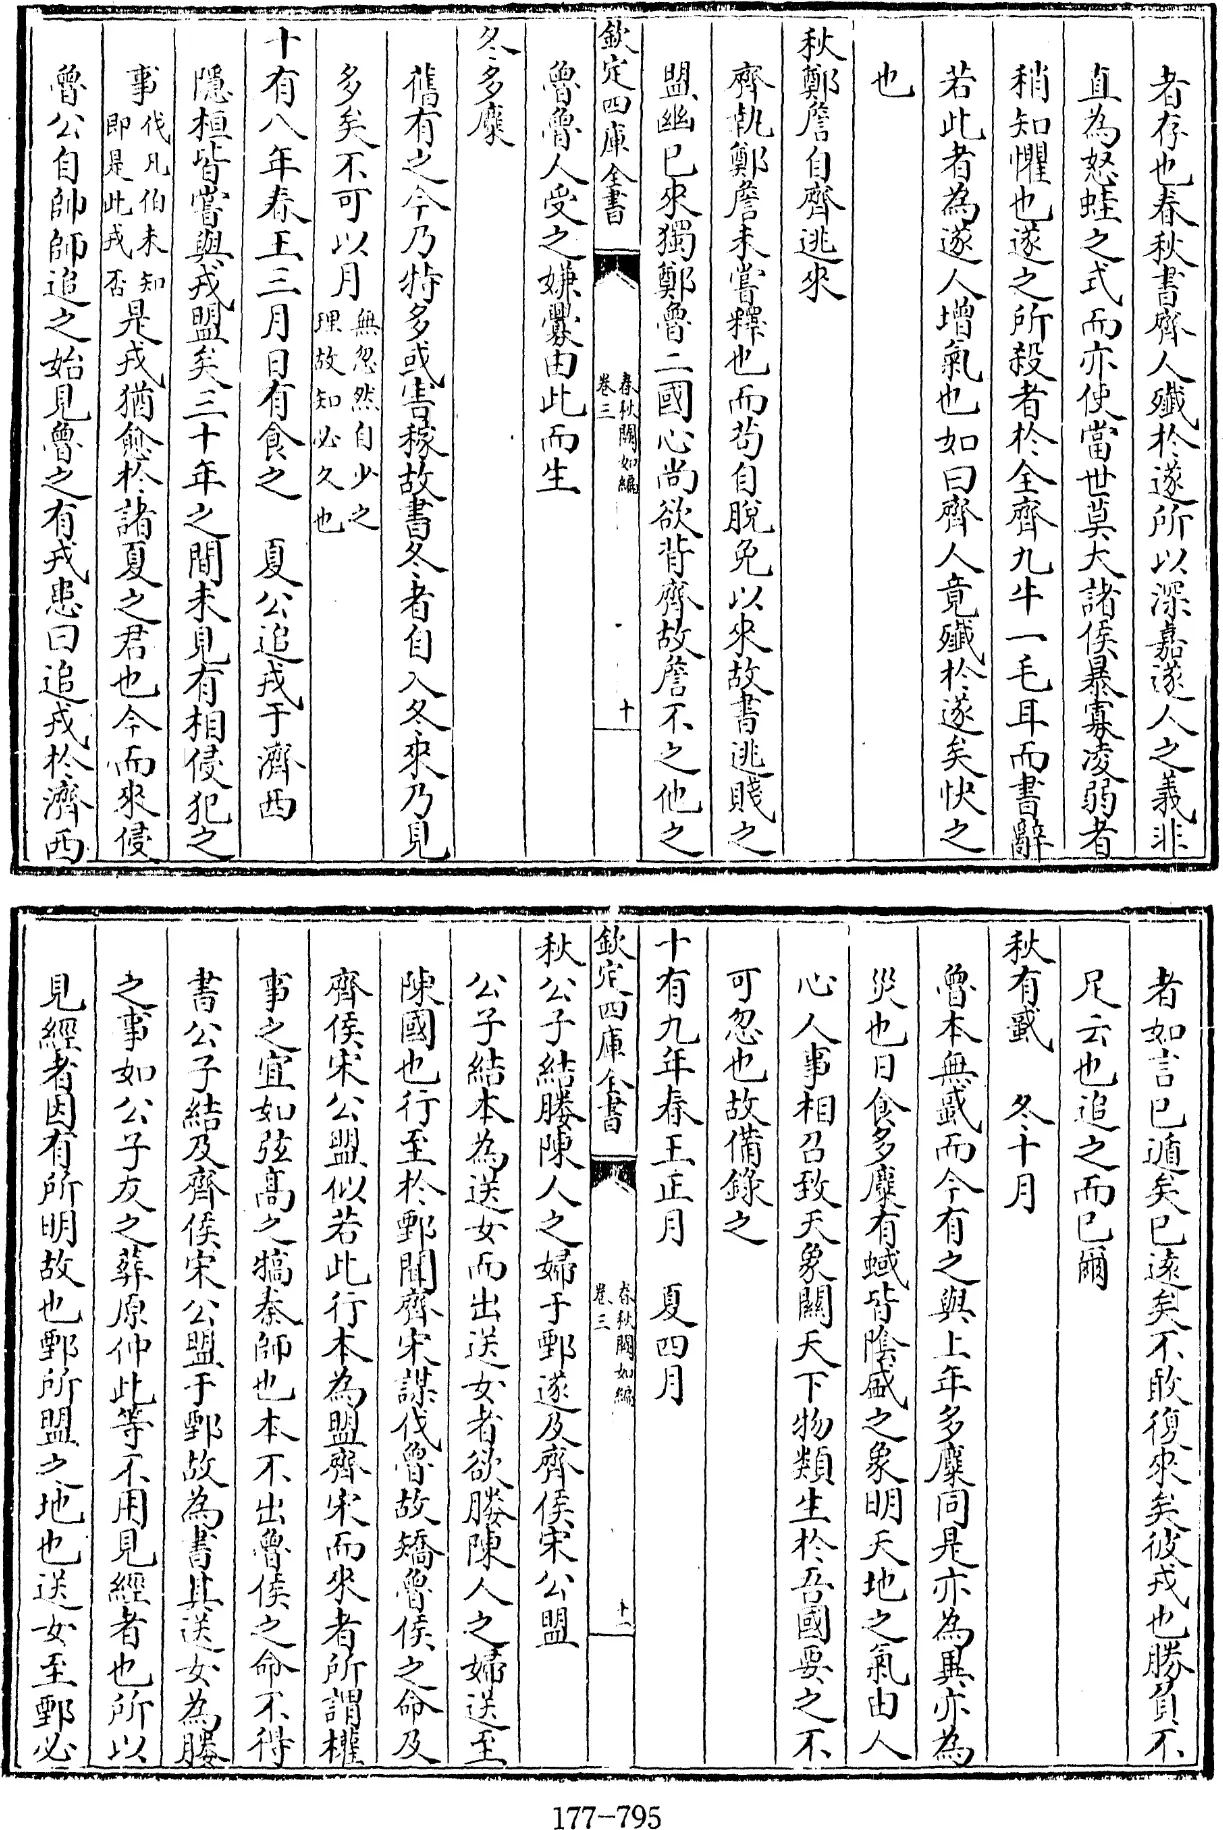 者存也春秋書齊人殲於遂所以深嘉遂人之義非
直為怒蛙之式而亦使當世莫大諸侯暴寡凌弱者
稍知懼也遂之所殺者於全齊九牛一毛耳而書辭
若此者為遂人增氣也如曰齊人竟殲於遂矣快之
也
秋鄭詹自齊逃來
齊執鄭詹未嘗釋也而苟自脫免以來故書逃賤之
盟幽已來獨鄭魯二國心尚欲背齊故詹不之他之
欽定四庫全書
春秋闕如編
卷三
十
魯魯人受之嫌釁由此而生
冬多麋
舊有之今乃特多或害稼故書冬者自入冬來乃見
多矣不可以月無忽然自少之
理故知必久也
十有八年春王三月日有食之　夏公追戎于濟西
隱桓皆嘗與戎盟矣三十年之間未見有相侵犯之
事伐凡伯未知
即是此戎否是戎猶愈於諸夏之君也今而來侵
魯公自帥師追之始見魯之有戎患曰追戎於濟西
者如言已遁矣已遠矣不敢復來矣彼戎也勝負不
足云也追之而已爾
秋有蜮　冬十月
魯本無蜮而今有之與上年多麋同是亦為異亦為
災也日食多麋有蜮皆陰盛之象明天地之氣由人
心人事相召致天象關天下物類生於吾國要之不
可忽也故備錄之
十有九年春王正月　夏四月
欽定四庫全書
春秋闕如編
卷三
十一
秋公子結媵陳人之婦于鄄遂及齊侯宋公盟
公子結本為送女而出送女者欲媵陳人之婦送至
陳國也行至於鄄聞齊宋謀伐魯故矯魯侯之命及
齊侯宋公盟似若此行本為盟齊宋而來者所謂權
事之宜如弦高之犒秦師也本不出魯侯之命不得
書公子結及齊侯宋公盟于鄄故為書其送女為媵
之事如公子友之葬原仲此等不用見經者也所以
見經者因有所明故也鄄所盟之地也送女至鄄必
177-795